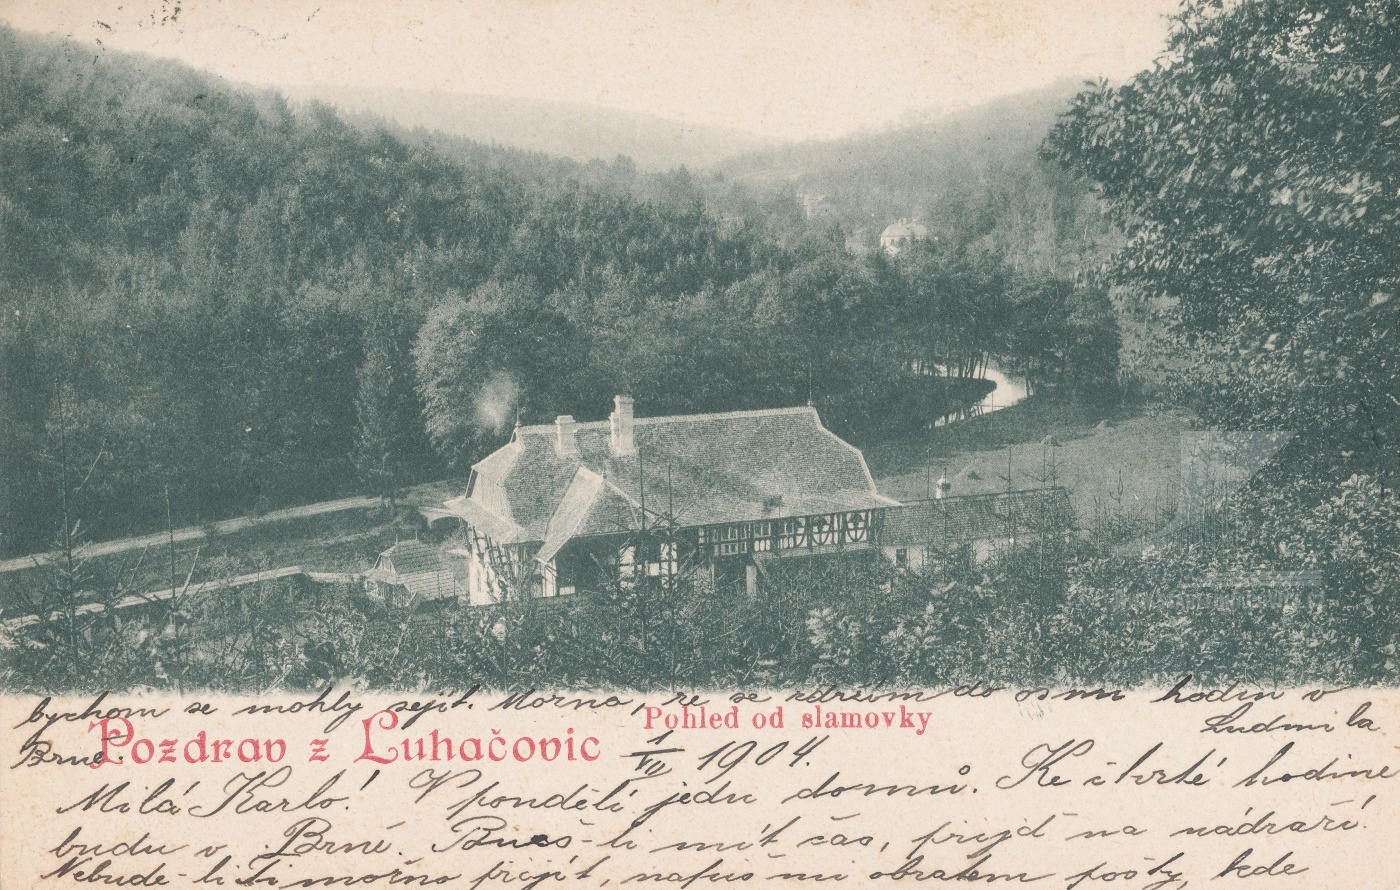 Pohled od slamovky
Pozdrav z Luhačovic
1/VII 1904.
Milá Karlo! V pondělí jedu domů. Ke čtvrté hodině
budu v Brně. Budeš-li mít čas, přijď na nádraží.
Nebude-li Ti možno přijít, napiš mi obratem pošty kde
bychom se mohly sejít. Možno, že se zdržím do osmi hodin v
Brně.
Ludmila